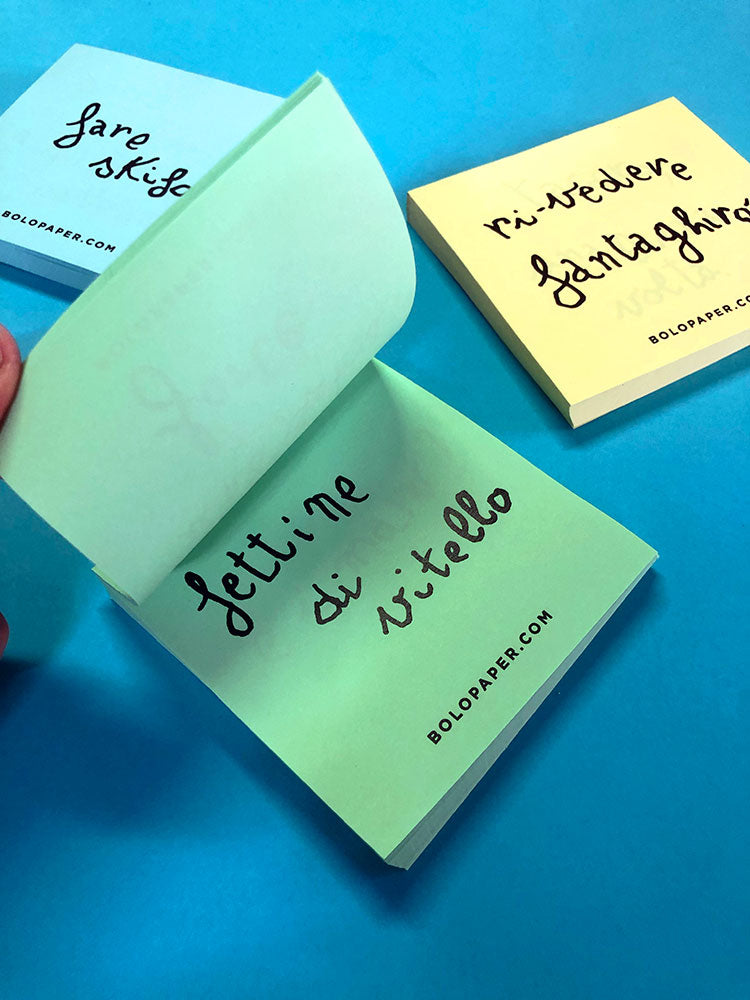 fare
skifo
BOLOPAPER.COM
ri-vedere
fantaghirò
BOLOPAPER.CO
fettine
di
vitello
BOLOPAPER.COM